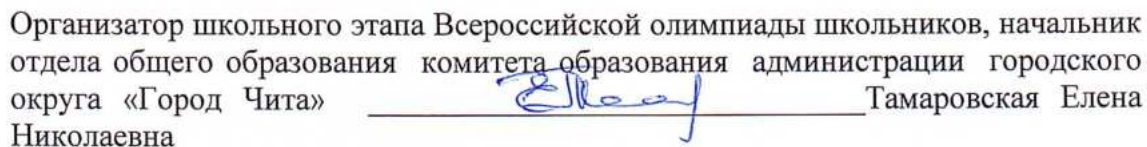 Организатор школьного этапа Всероссийской олимпиады школьников, начальник
отдела общего образования комитета образования администрации городского
округа «Город Чита» Тамаровская Елена
Николаевна